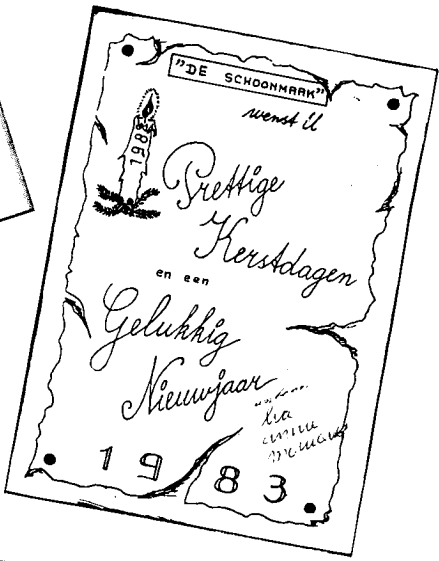 "DE SCHOONMAAK"
wenst U
1983
Prettige
Kerstdagen
en een
Gelukkig
Nieuwjaar
1983